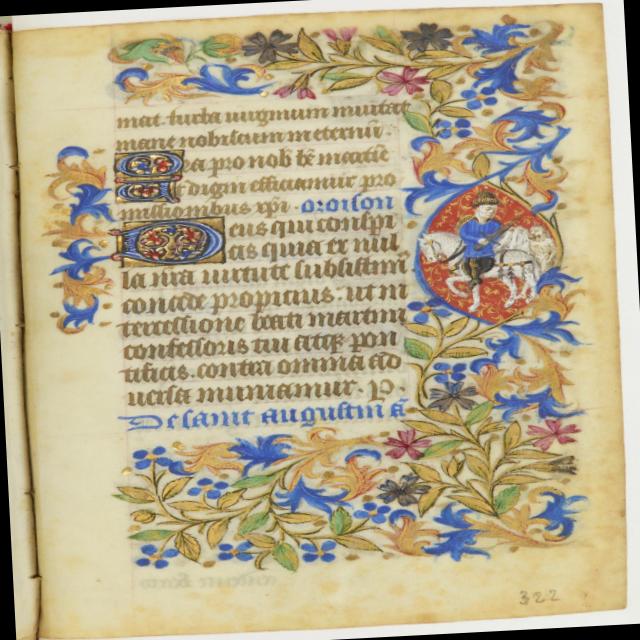 mat turba uirginum mutat
mane nobiscum meternū.
Ora pro nob bē martīe
Ut digni efficiamur pro
missionibus xpī. oroison
Deus qui conspi
cis quia ex nul
la nr̄a uirtute subsistim
concede propicius. ut in
tercessione beati martini
confessoris tui atqꝫ pon
tificis. contra omnia ad
uersa muniamur. P.
De saint augustin ā
322